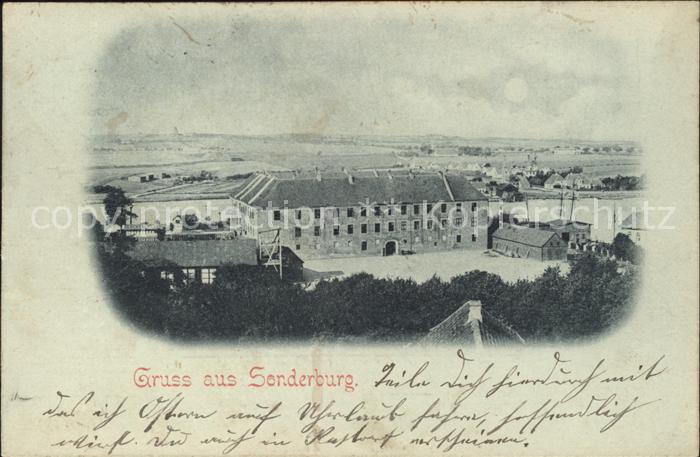 copy protection @ Kopperschutz
Gruss aus Sonderburg. Teile Dich hierdurch mit
das ich Ostern auf Uhrlaub fahre, hoffendlich
wirst Du auch in Rastorf erscheinen.